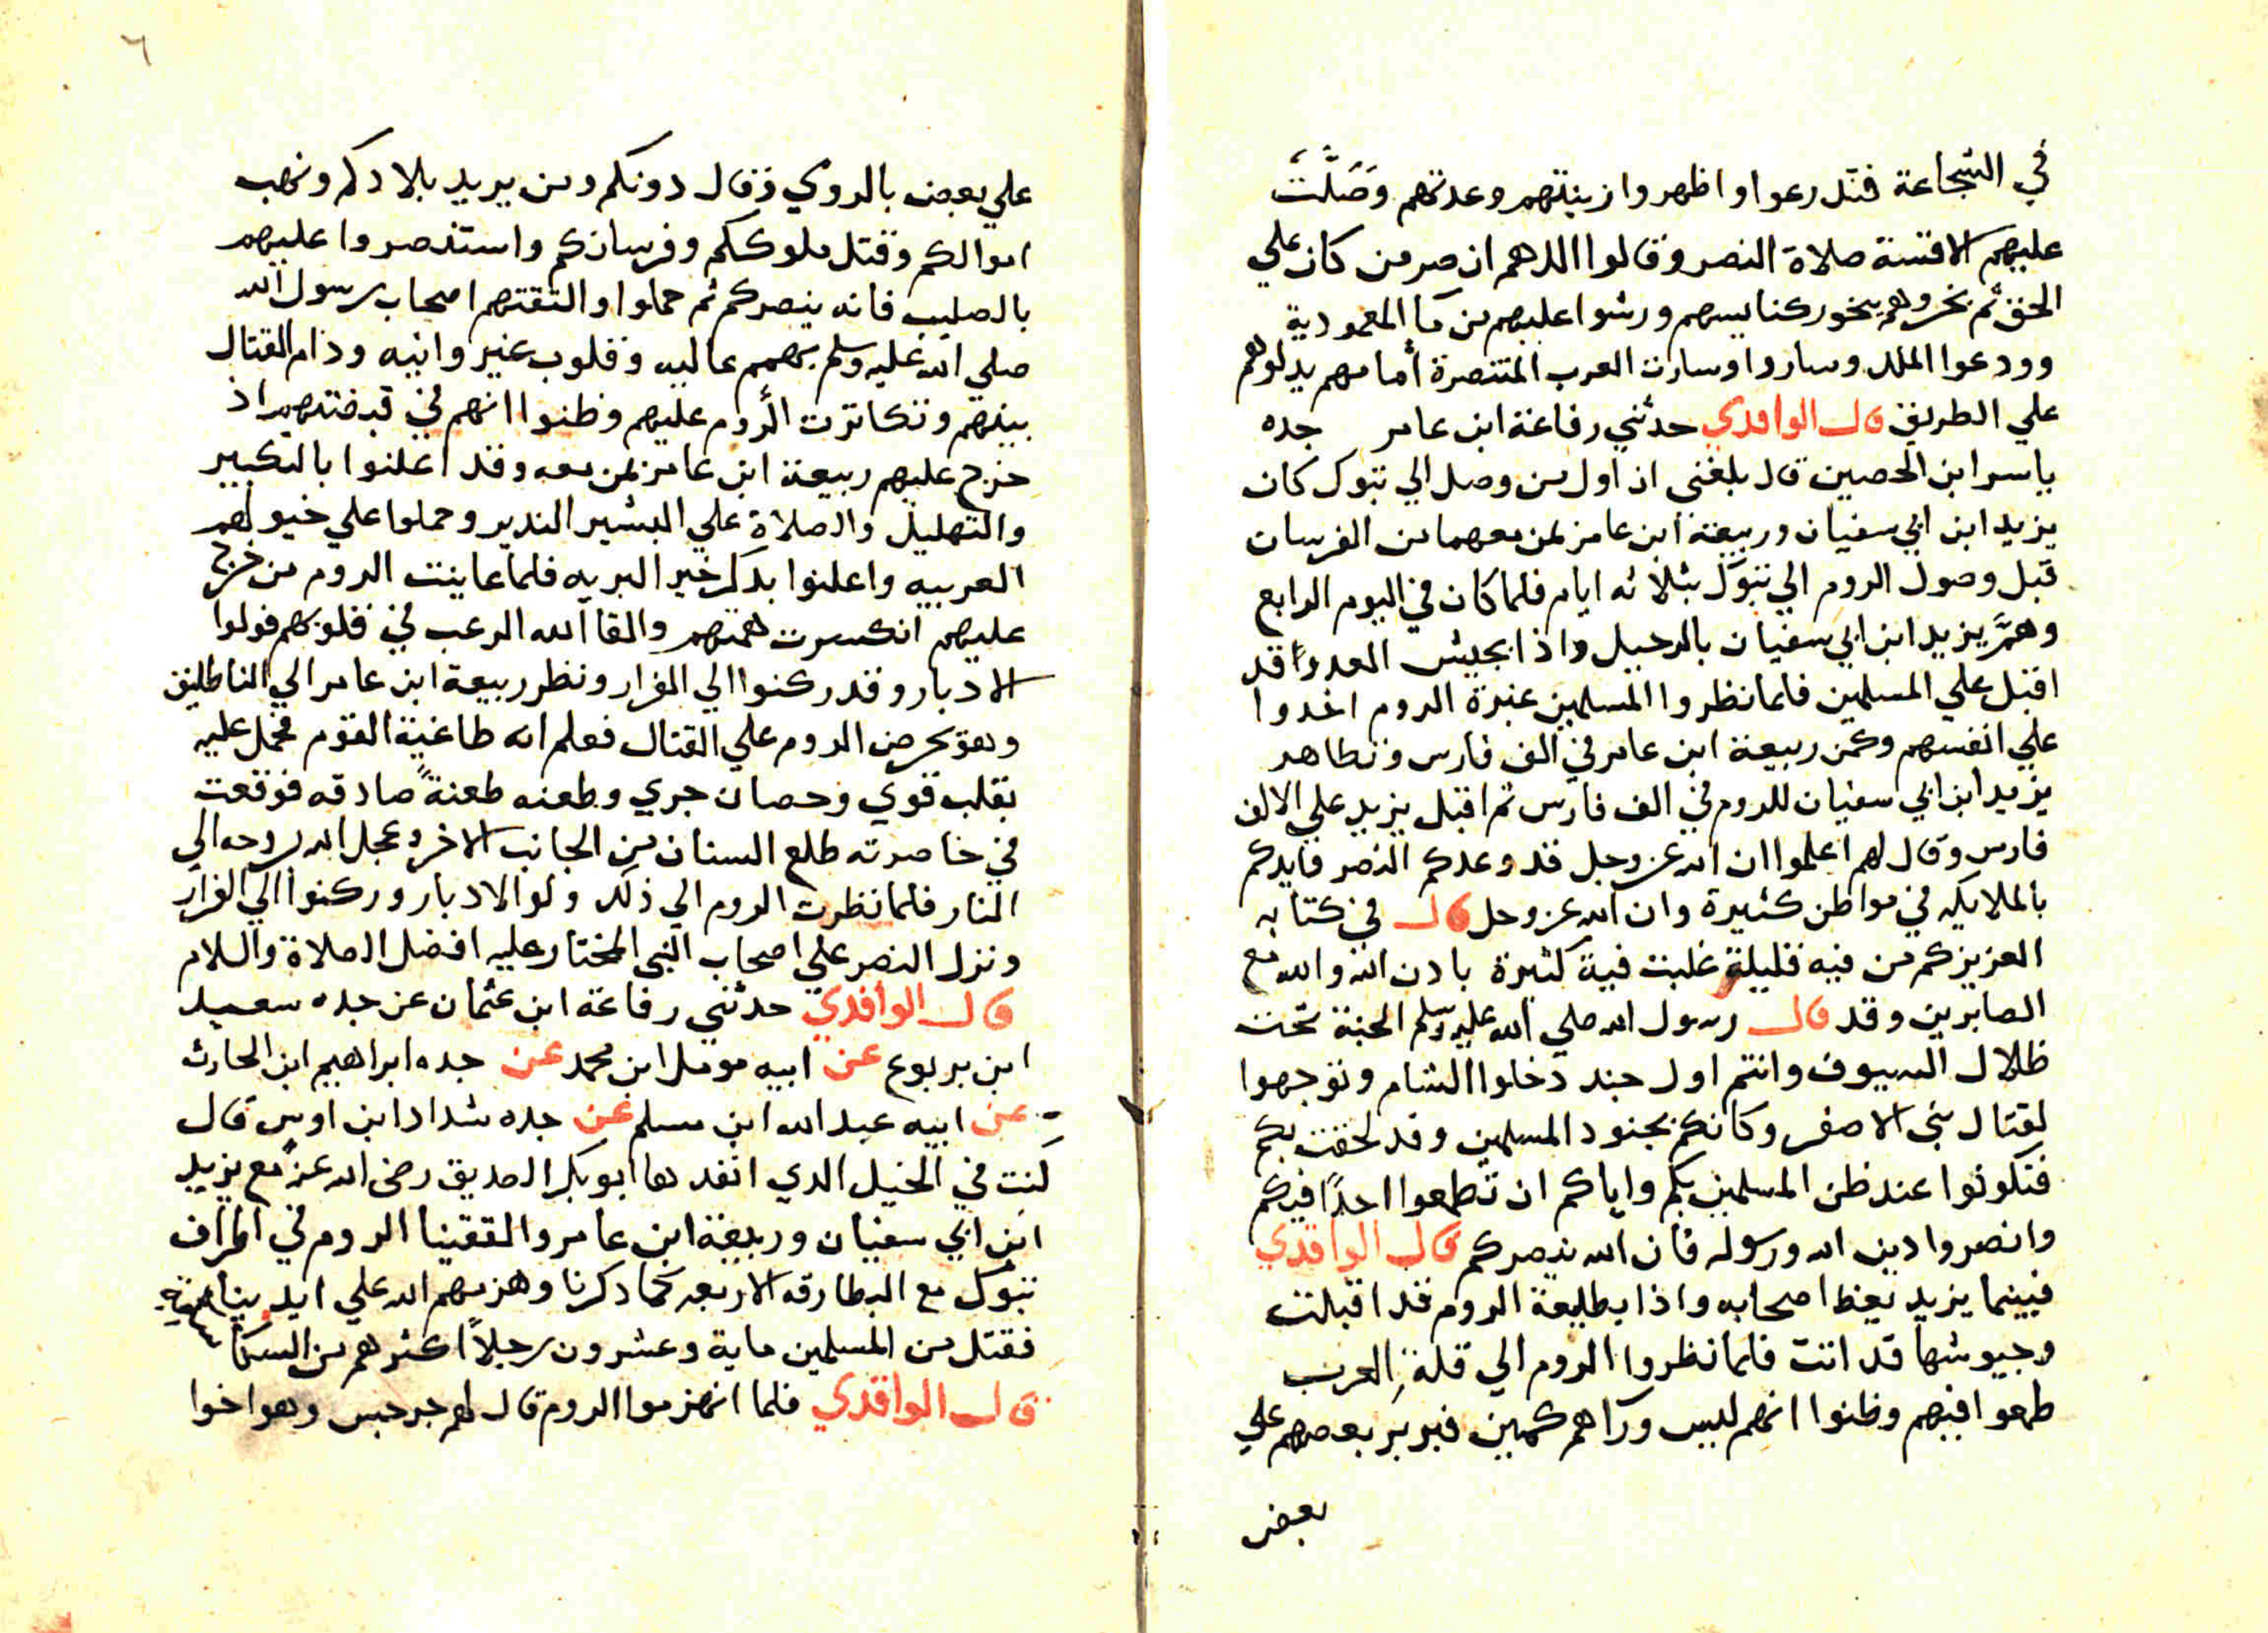 في الشجاعة فتدرعوا واظهروا زينتهم وعدتهم وَصَلَّتْ
عليهم الاقسة صلاة النصر وقالوا اللهم انصر من كان علي
الحق ثم بخروهم ببخور كنايسهم ورشوا عليهم من مآ المعمودية
وودعوا الملك وساروا وسارت العرب المتنصرة أمامهم يدلوهم
علي الطريق قال الواقدي حدثني رفاعة ابن عامر جده
ياسر ابن الحصين قال بلغني ان اول من وصل الي تبوك كان
يزيد ابن ابي سفيان وربيعة ابن عامر بمن معهما من الفرسان
قبل وصول الروم الي تبوك بثلاثه ايام فلما كان في اليوم الرابع
وهمَّ يزيد ابن ابي سفيان بالرحيل واذا بجيش العدو قد
اقبل علي المسلمين فلما نظروا المسلمين غبرة الروم اخدوا
علي انفسهم وكمن ربيعة ابن عامر في الف فارس وتظاهر
يزيد ابن ابي سفيان للروم في الف فارس ثم اقبل يزيد علي الالف
فارس وقال لهم اعلموا ان الله عز وجل قد وعدكم النصر فايدكم
بالملايكه في مواطن كثيرة وان الله عز وجل قال في كتابه
العزيز كم من فيه قليلة غلبت فية كثيرة بادن الله والله مع
الصابرين وقد قال رسول الله صلي الله عليه وسلم الجنة تحت
ظلال السيوف وانتم اول جند دخلوا الشام وتوجهوا
لقتال بني الاصفر وكانكم بجنود المسلمين وقد لحقت بكم
فتكونوا عند ظن المسلمين بكم واياكم ان تطمعوا احدًا فيكم
وانصروا دين الله ورسوله فان الله ينصركم قال الواقدي
فبينما يزيد يعظ اصحابه واذا بطليعة الروم قد اقبلت
وجيوشها قد اتت فلما نظروا الروم الي قلة العرب
طمعوا فيهم وظنوا انهم ليس ورآهم كمين فبربر بعضهم علي
بعض
٦
علي بعض بالروي وقال دونكم ومن يريد بلادكم ونهب
اموالكم وقتل ملوككم وفرسانكم واستنصروا عليهم
بالصليب فانه ينصركم ثم حملوا والتقتهم اصحاب رسول الله
صلي الله عليه وسلم بهمم عاليه وقلوب غير وانيه ودام القتال
بينهم وتكاثرت الروم عليهم وظنوا انهم في قبضتهم اذ
خرج عليهم ربيعة ابن عامر بمن معه وقد اعلنوا بالتكبير
والتهليل والصلاة علي البشير الندير وحملوا علي خيولهم
العربيه واعلنوا بدكر خير البريه فلما عاينت الروم من خرج
عليهم انكسرت همتهم والقا الله الرعب في قلوبهم فولوا
الادبار وقد ركنوا الي الفرار ونظر ربيعة ابن عامر الي الناطليق
وهو يحرض الروم علي القتال فعلم انه طاغية القوم فحمل عليه
بقلب قوي وحصان جري وطعنه طعنةً صادقه فوقعت
في خاصرته طلع السنان من الجانب الاخر وعجل الله بروحه الي
النار فلما نظرت الروم الي ذلك ولوا الادبار وركنوا الي الفرار
ونزل النصر علي اصحاب النبي المختار عليه افضل الصلاة والسلام
قال الواقدي حدثني رفاعة ابن عثمان عن جده سعيد
ابن يربوع عن ابيه مومل ابن محمد عن جده ابراهيم ابن الحارث
عن ابيه عبد الله ابن مسلم عن جده شداد ابن اوس قال
كنت في الخيل الدي انفدها ابو بكر الصديق رضي الله عنه مع يزيد
ابن ابي سفيان وربيعة ابن عامر والتقينا الروم في اطراف
تبوك مع البطارقه الاربعه كما دكرنا وهزمهم الله علي ايدينا
فقتل من المسلمين ماية وعشرون رجلاً اكثرهم من السكا
قال الواقدي فلما انهزموا الروم قال لهم جرجيس وهو اخوا